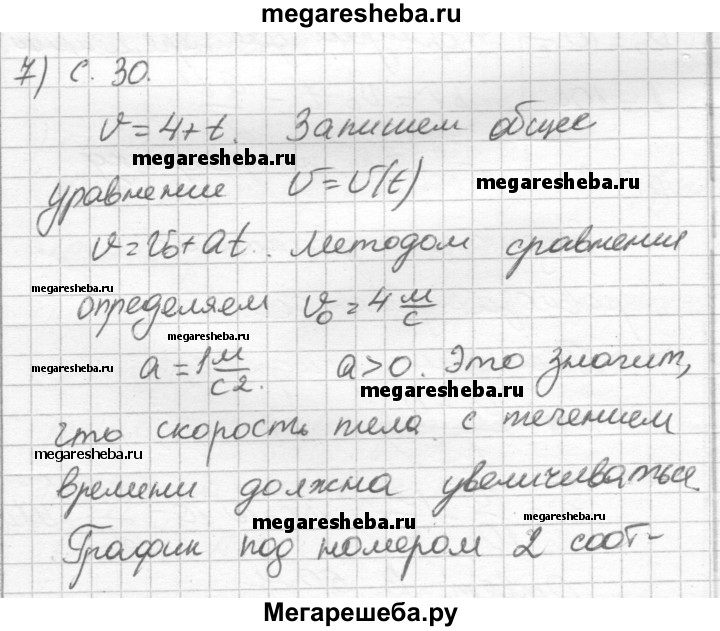 megaresheba.ru
7) с. 30.
υ = 4 + t. Запишем общее
megaresheba.ru
уравнение υ = υ(t) megaresheba.ru
υ = υ₀ + at. Методом сравнения
megaresheba.ru
определяем υ₀ = 4 м/с
megaresheba.ru
megaresheba.ru a = 1 м/с2. a > 0. Это значит,
megaresheba.ru
что скорость тела с течением
megaresheba.ru
времени должна увеличиваться.
megaresheba.ru megaresheba.ru
График под номером 2 соот-
megaresheba.ru
Мегарешеба.ру